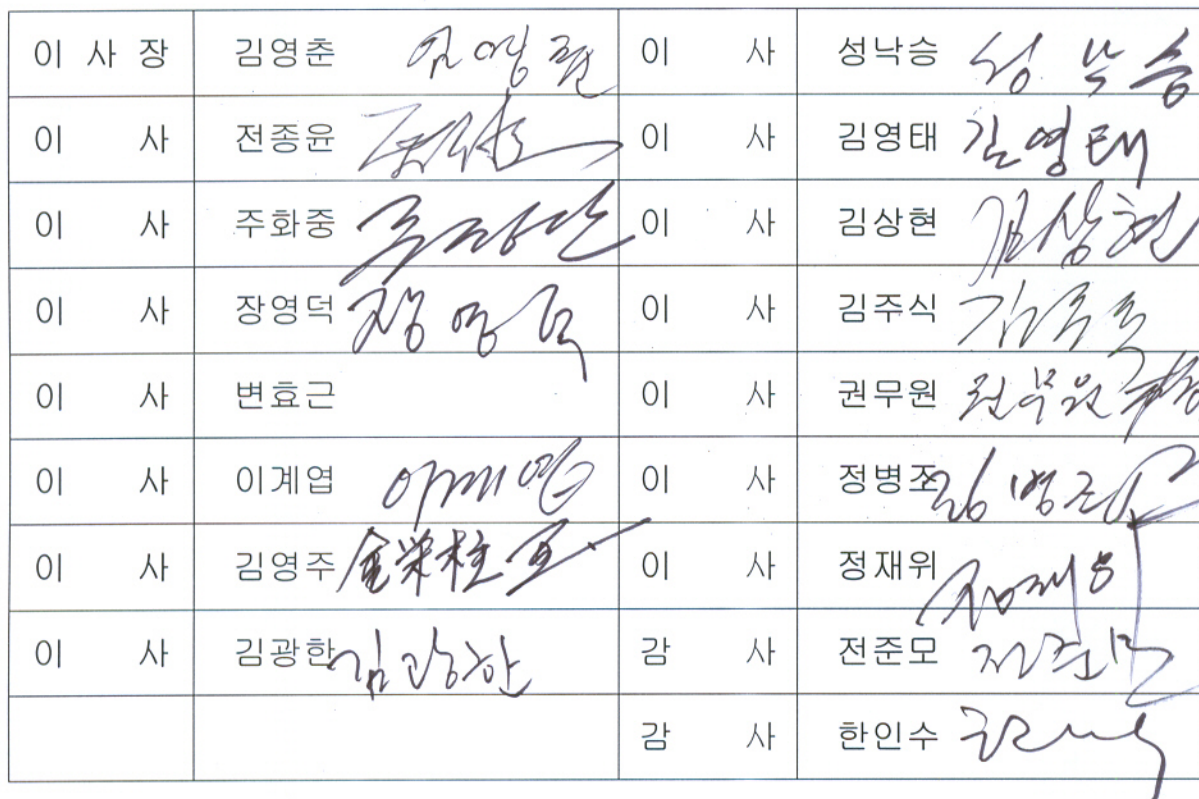 이 사 장 김영춘 이 사 성낙승 성 낙 승
이 사 전종윤 이 사 김영태 김영태
이 사 주화중 이 사 김상현 김상현
이 사 장영덕 장영덕 이 사 김주식 김주식
이 사 변효근 이 사 권무원 권무원
이 사 이계엽 이계엽 이 사 정병조 정병조
이 사 김영주 金栄柱 이 사 정재위 정재위
이 사 김광한 김광한 감 사 전준모 전준모
감 사 한인수